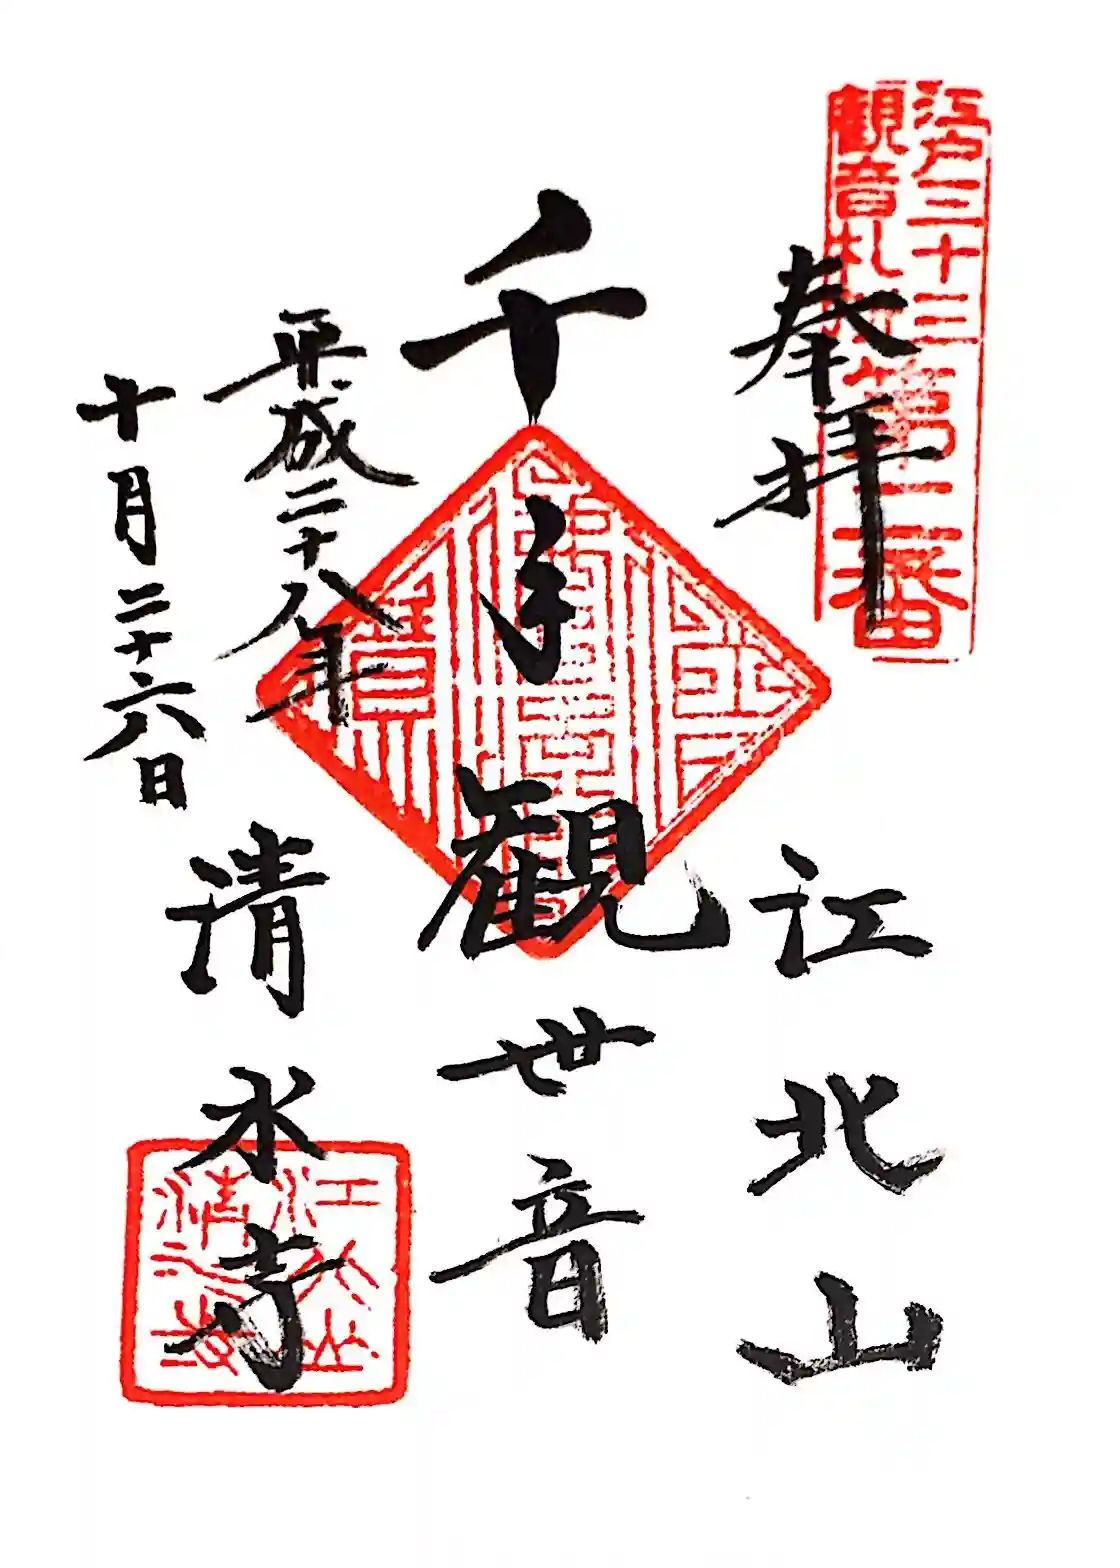 江戸三十三
観音札所第二番
奉拝
江北山
千手観世音
平成二十八年
十月二十六日
清水寺
江北山
清水寺